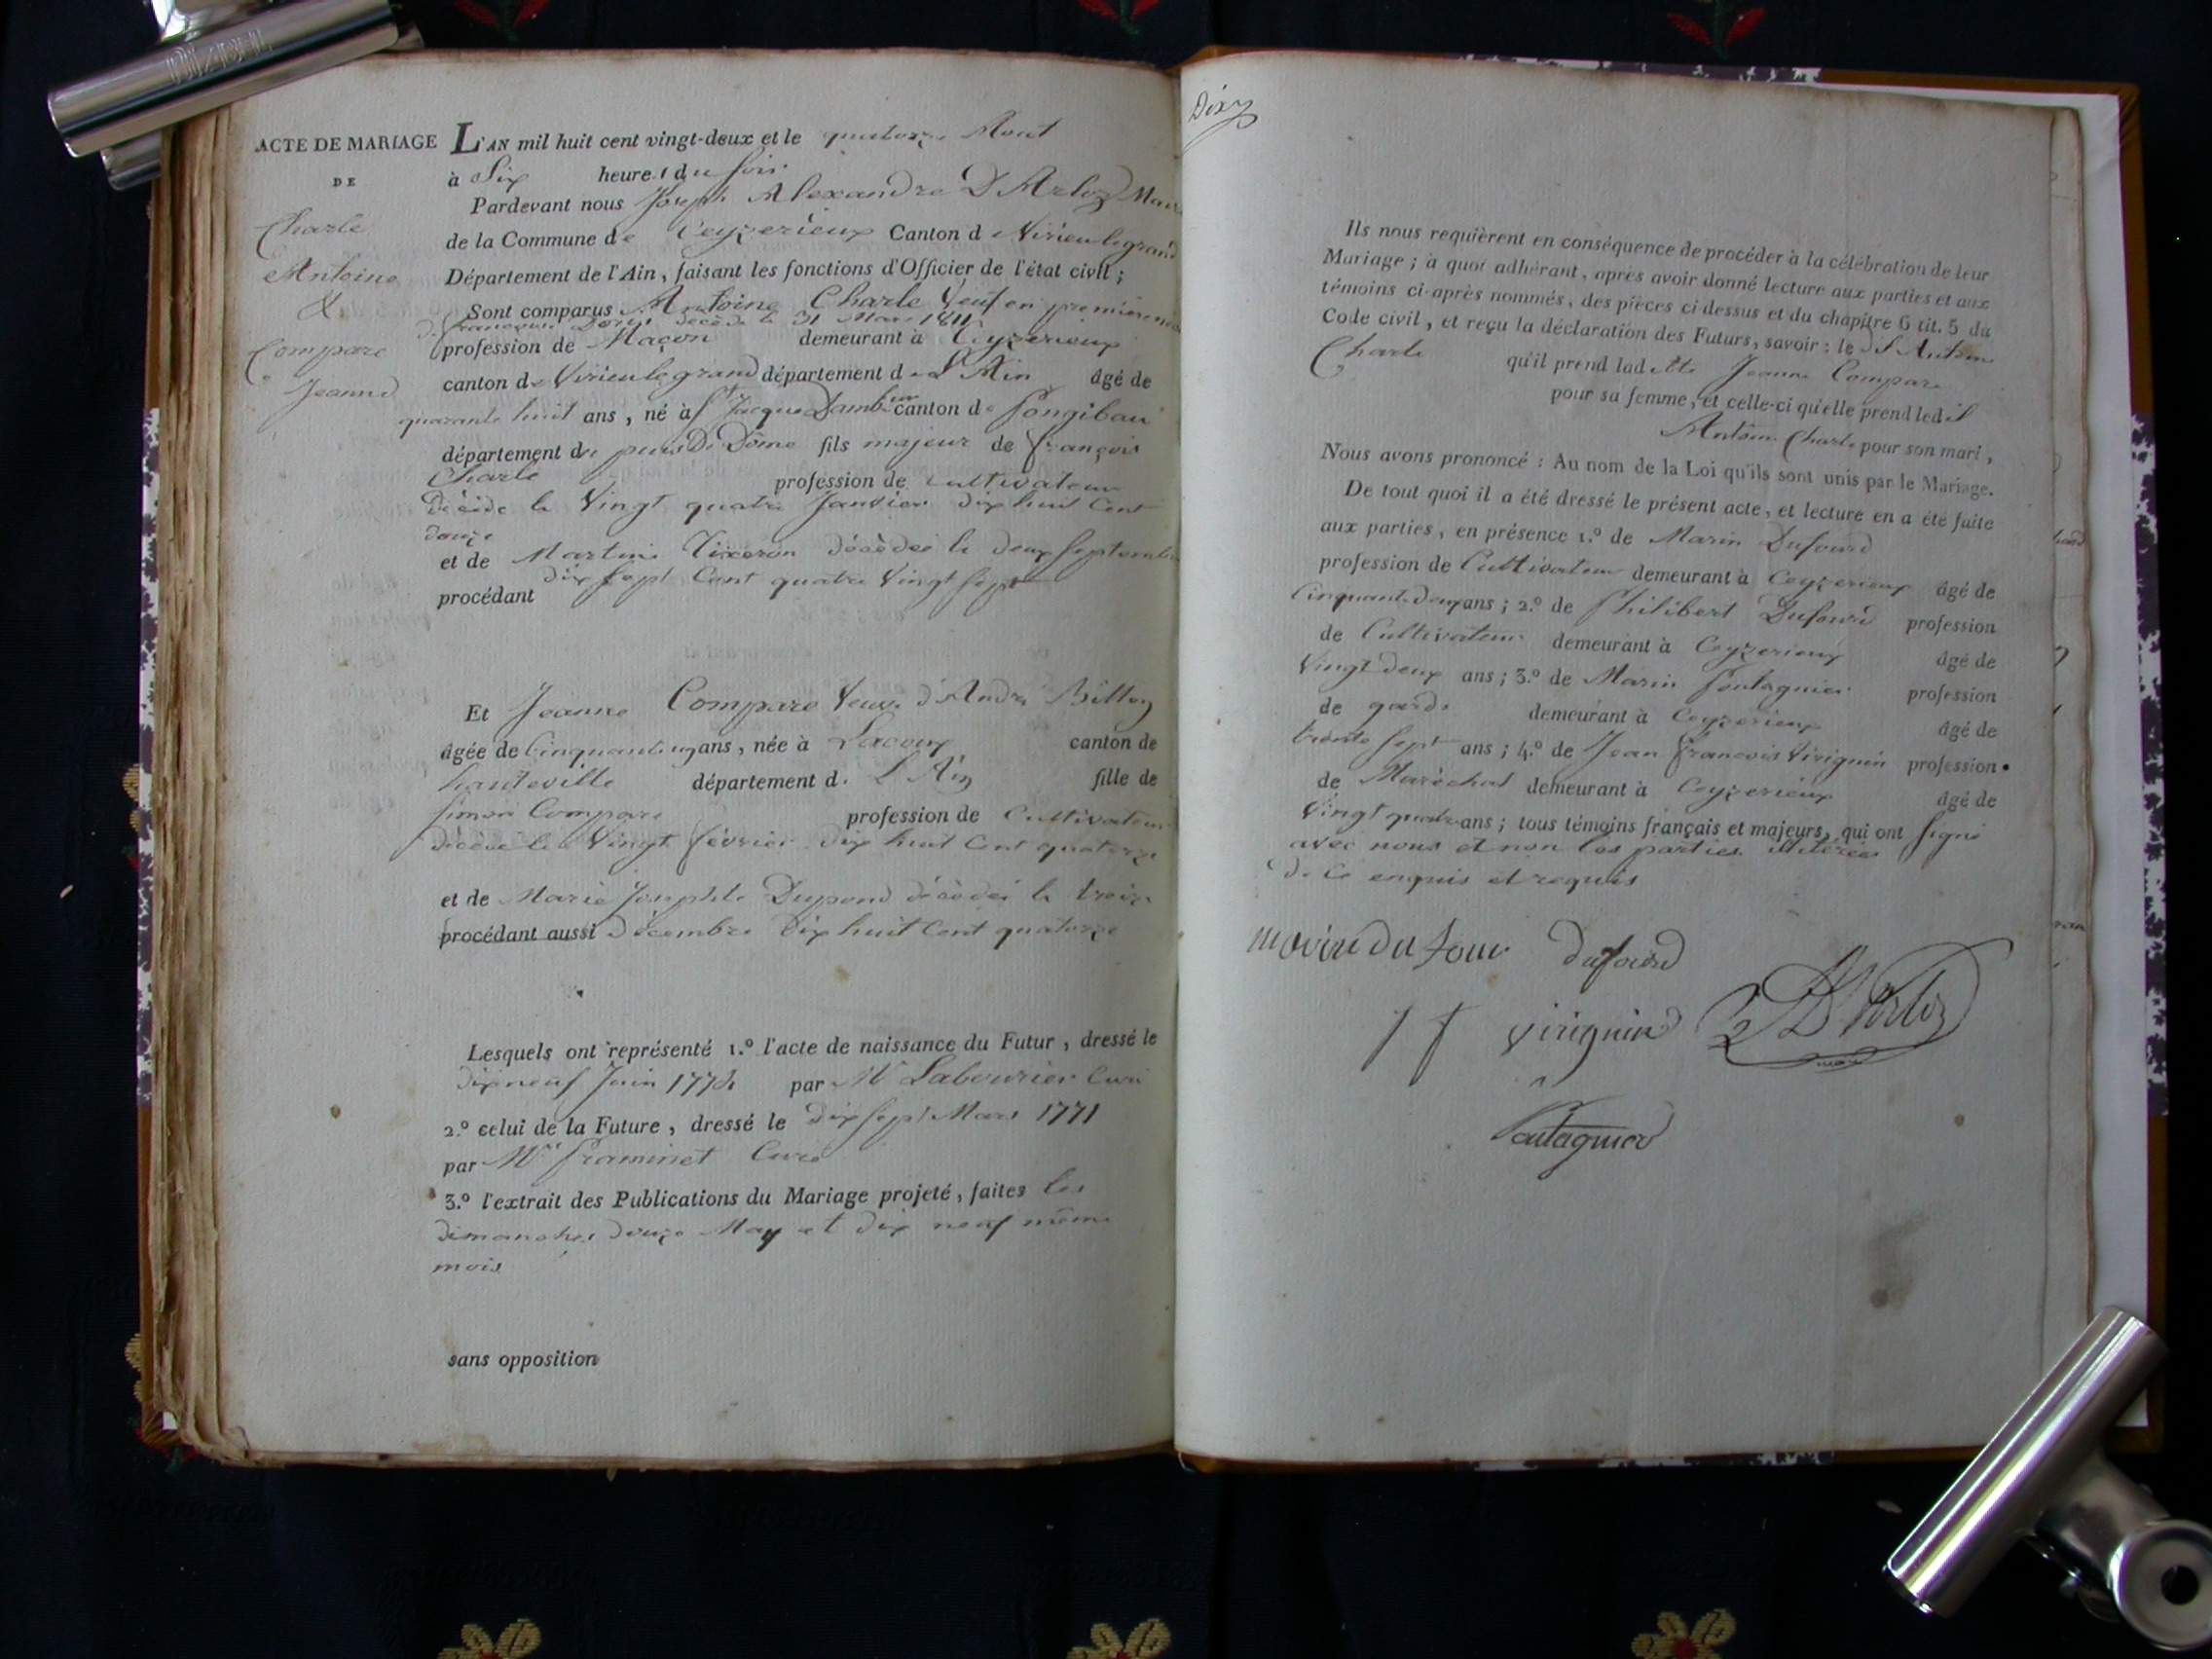 ACTE DE MARIAGE
DE
Charle
Antoine
&
Compare
Jeanne
L'AN mil huit cent vingt-deux et le quatorze Aout
à Six heures du soir
Pardevant nous Joseph Alexandre D'Arloz Maire
de la Commune de Ceyzerieux Canton de Virieu le grand
Département de l'Ain, faisant les fonctions d'Officier de l'état civil;
Sont comparus Antoine Charle Veuf en première
décédé le 31 Mars 1811
profession de Maçon demeurant à Ceyzerieux
canton de Virieu le grand département de L'Ain âgé de
quarante huit ans, né à St Jacques Dambur canton de Pongibau
département du puis De Dôme fils majeur de françois
Charle profession de cultivateur
décédé le Vingt quatre Janvier dix huit Cent
douze
et de Martine Tixeron décédée le deux Septembre
dix Sept Cent quatre Vingt Sept
procédant
Et Jeanne Compare Veuve d'André Billon
âgée de Cinquante un ans, née à Lacoux canton de
hauteville département de L'Ain fille de
Simon Compare profession de Cultivateur
décédé le Vingt février dix huit Cent quatorze
et de Marie Josephte Dupond décédée le treize
procédant aussi décembre dix huit Cent quatorze
Lesquels ont représenté 1.º l'acte de naissance du Futur, dressé le
dix neuf Juin 1774 par Mr Labourier Curé
2.º celui de la Future, dressé le dix Sept Mars 1771
par Mr framinet Curé
3.º l'extrait des Publications du Mariage projeté, faites les
dimanches douze May et dix neuf même
mois
sans opposition
Dix
Ils nous requièrent en conséquence de procéder à la célébration de leur
Mariage; à quoi adhérant, après avoir donné lecture aux parties et aux
témoins ci-après nommés, des pièces ci-dessus et du chapitre 6 tit. 5 du
Code civil, et reçu la déclaration des Futurs, savoir: le dit Antoine
Charle qu'il prend ladette Jeanne Compare
pour sa femme, et celle-ci qu'elle prend ledit
Antoine Charle pour son mari,
Nous avons prononcé: Au nom de la Loi qu'ils sont unis par le Mariage.
De tout quoi il a été dressé le présent acte, et lecture en a été faite
aux parties, en présence 1.º de Marin Dufourd
profession de Cultivateur demeurant à Ceyzerieux âgé de
Cinquante deux ans; 2.º de Philibert Dufourd profession
de Cultivateur demeurant à Ceyzerieux âgé de
Vingt deux ans; 3.º de Marin Pontagnier profession
de garde demeurant à Ceyzerieux âgé de
trente Sept ans; 4.º de Jean francois Virignin profession
de Maréchal demeurant à Ceyzerieux âgé de
Vingt quatre ans; tous témoins français et majeurs, qui ont Signé
avec nous et non les parties illitérées
de ce enquis et requis
marin du four dufourd
J f virignin D'Arloz
maire